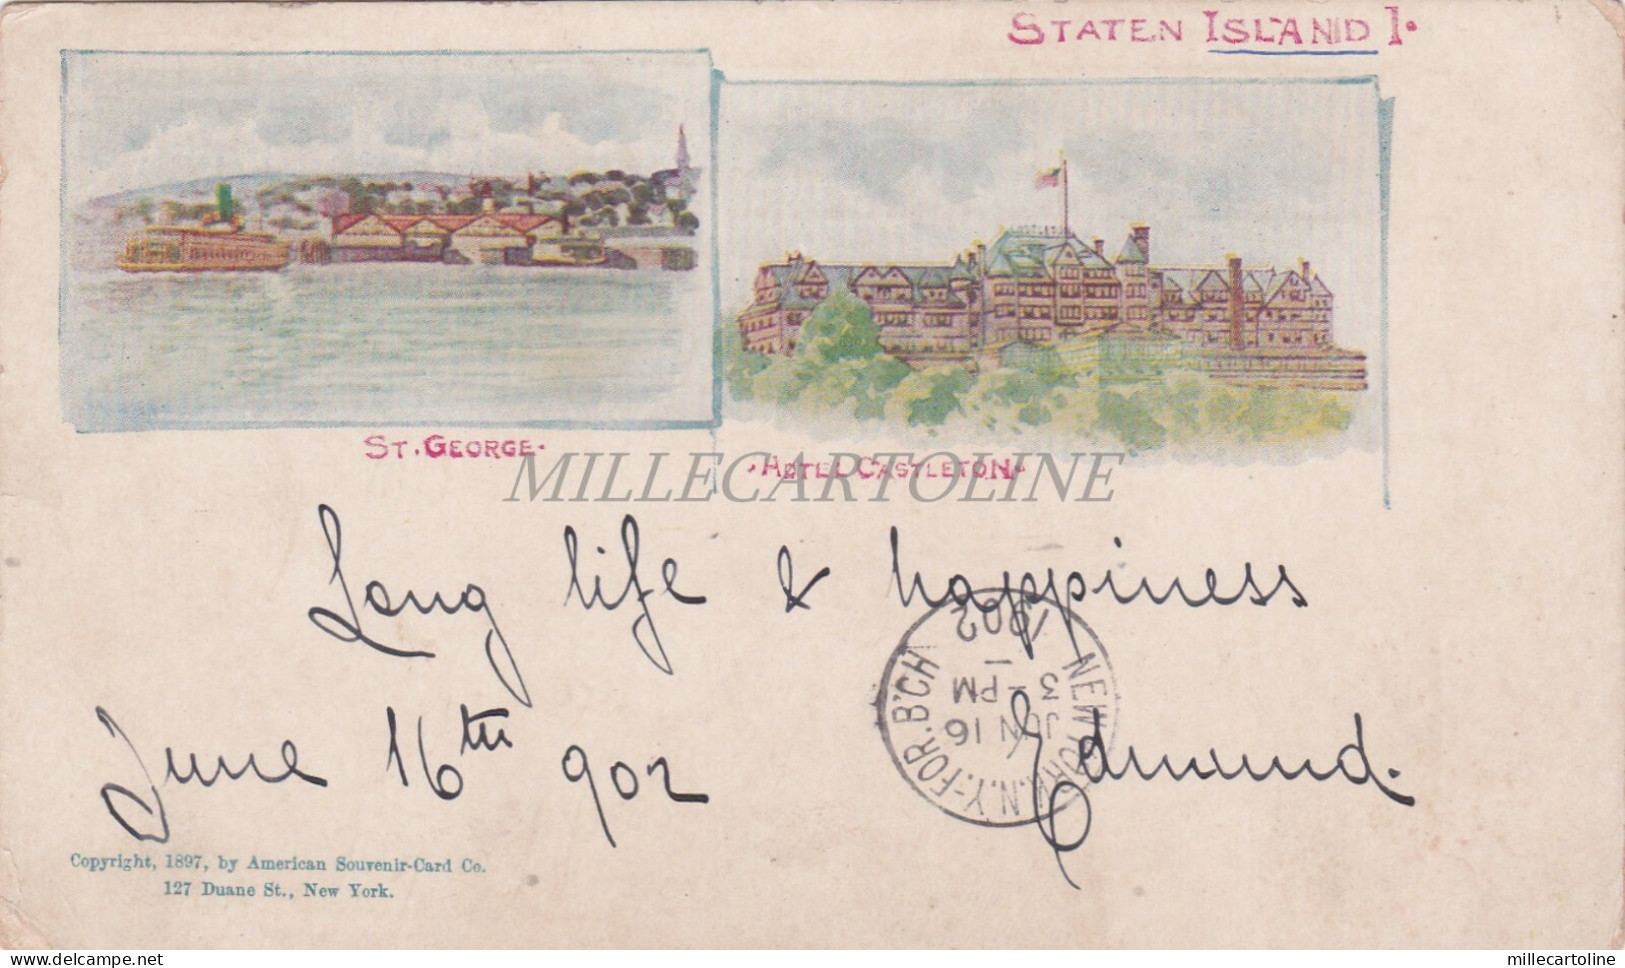 STATEN ISLAND 1.
ST. GEORGE.
HOTEL CASTLETON.
MILLECARTOLINE
Long life & happiness
June 16th 902
Edmund.
NEW YORK, N.Y.-FOR. B'CH
JUN 16
3 - PM
1
1902
Copyright, 1897, by American Souvenir-Card Co.
127 Duane St., New York.
delcampe.net
millecartoline